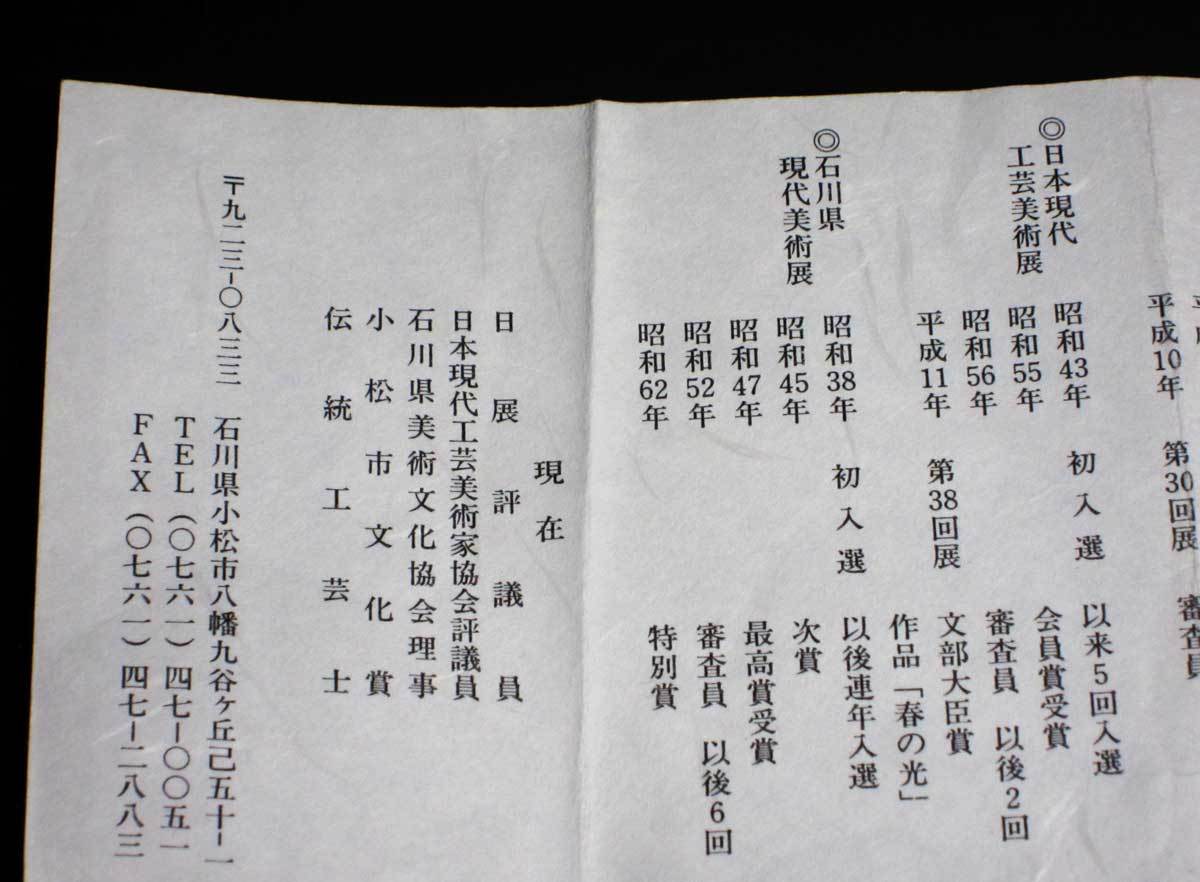 平成10年 第30回展 審査員
◎日本現代
工芸美術展
昭和43年 初入選 以来5回入選
昭和55年 会員賞受賞
昭和56年 審査員 以後2回
平成11年 第38回展 文部大臣賞
作品「春の光」
◎石川県
現代美術展
昭和38年 初入選 以後連年入選
昭和45年 次賞
昭和47年 最高賞受賞
昭和52年 審査員 以後6回
昭和62年 特別賞
現在
日展評議員
日本現代工芸美術家協会評議員
石川県美術文化協会理事
小松市文化賞
伝統工芸士
〒九二三-〇八三三 石川県小松市八幡九谷ヶ丘己五十-一
TEL(〇七六一)四七-〇〇五一
FAX(〇七六一)四七-二八八三